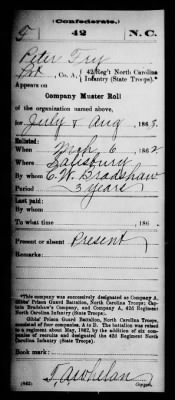 (Confederate.)
F 42 N. C.
Peter Fry
Pvt, Co. A., 42 Reg't North Carolina Infantry (State Troops).*
Appears on
Company Muster Roll
of the organization named above,
for July & Aug, 1863.
Enlisted:
When Mch 6, 1862.
Where Salisbury
By whom C. W. Bradshaw
Period 3 years
Last paid:
By whom
To what time , 186 .
Present or absent Present
Remarks:
*This company was successively designated as Company A,
Gibbs' Prison Guard Battalion, North Carolina Troops; Captain
Bradshaw's Company, and Company A, 42d Regiment
North Carolina Infantry (State Troops).
Gibbs' Prison Guard Battalion, North Carolina Troops,
consisted of four companies, A to D. The battalion was raised
to a regiment about May, 1862, by the addition of six companies
of recruits and designated the 42d Regiment North
Carolina Infantry (State Troops).
Book mark:
(642) Copyist.